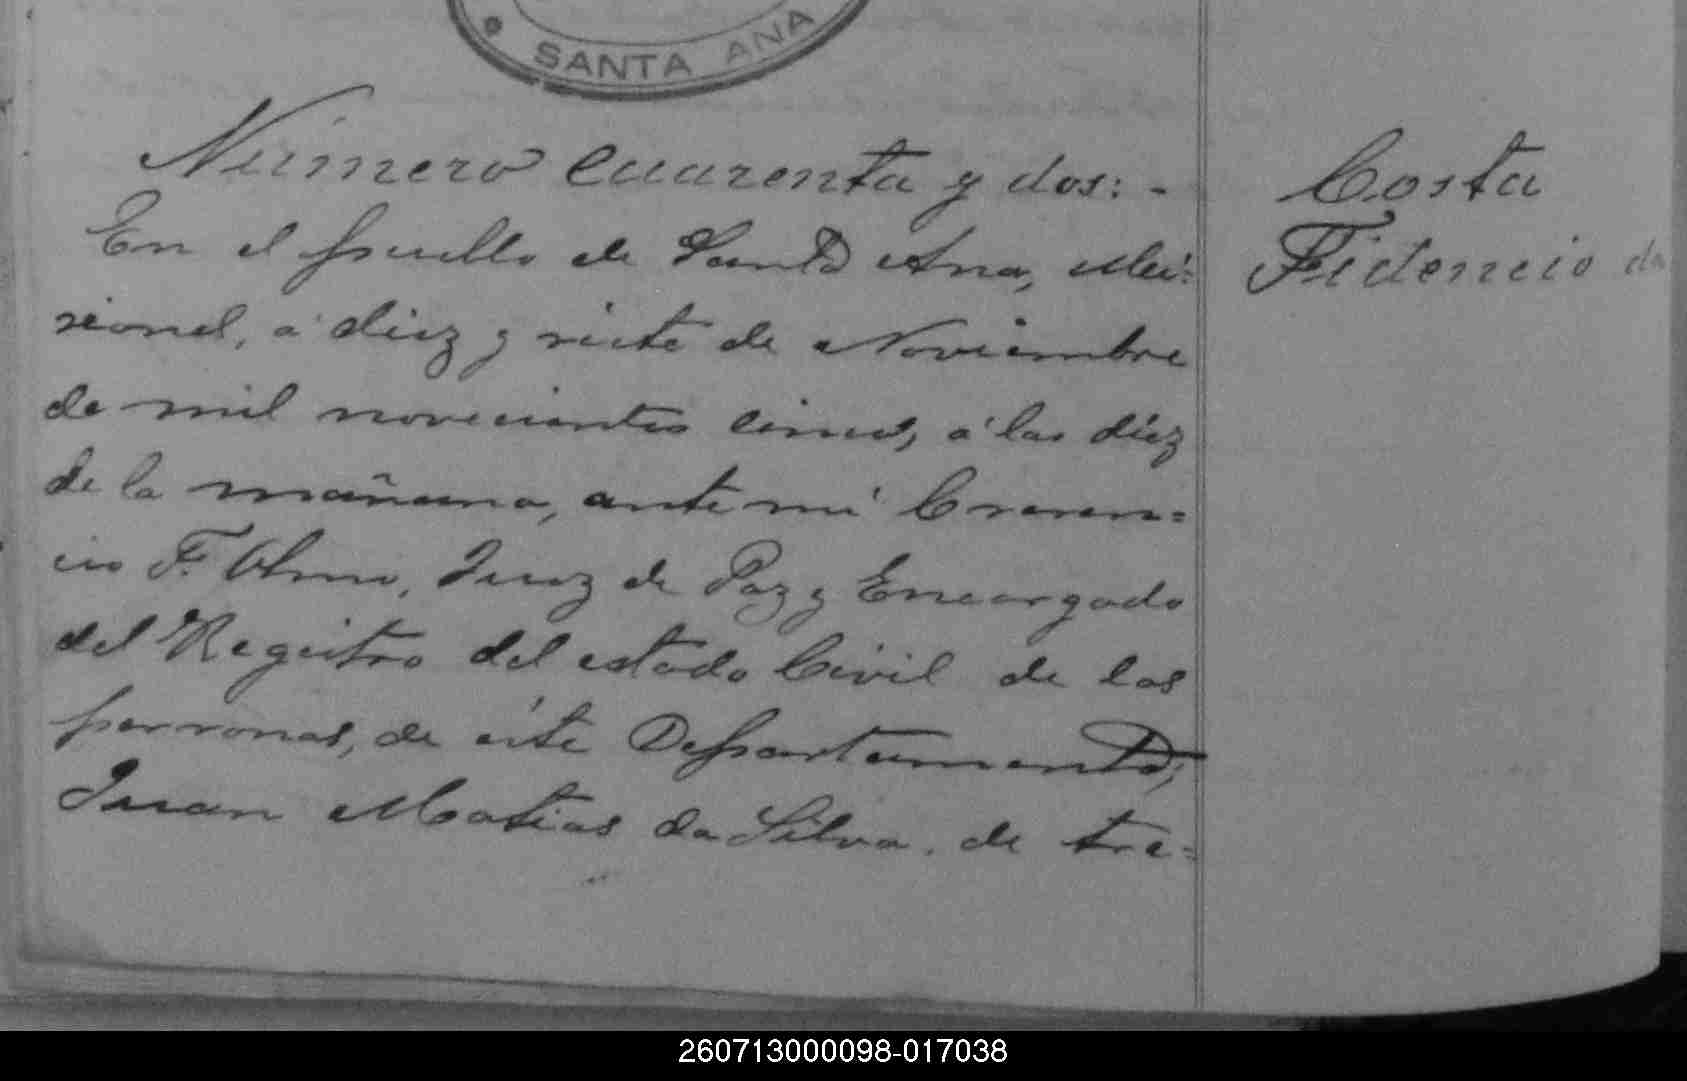 SANTA ANA
Número cuarenta y dos: -
En el pueblo de Santa Ana, Mi=
sional, á diez y siete de Noviembre
de mil novecientos cinco, á las diez
de la mañana, ante mi Cresen=
cio F. Olmo, Juez de Paz y Encargado
del Registro del estado Civil de las
personas, de éste Departamento,
Juan Matias da Silva, de tre=
Costa
Fidencio da
260713000098-017038